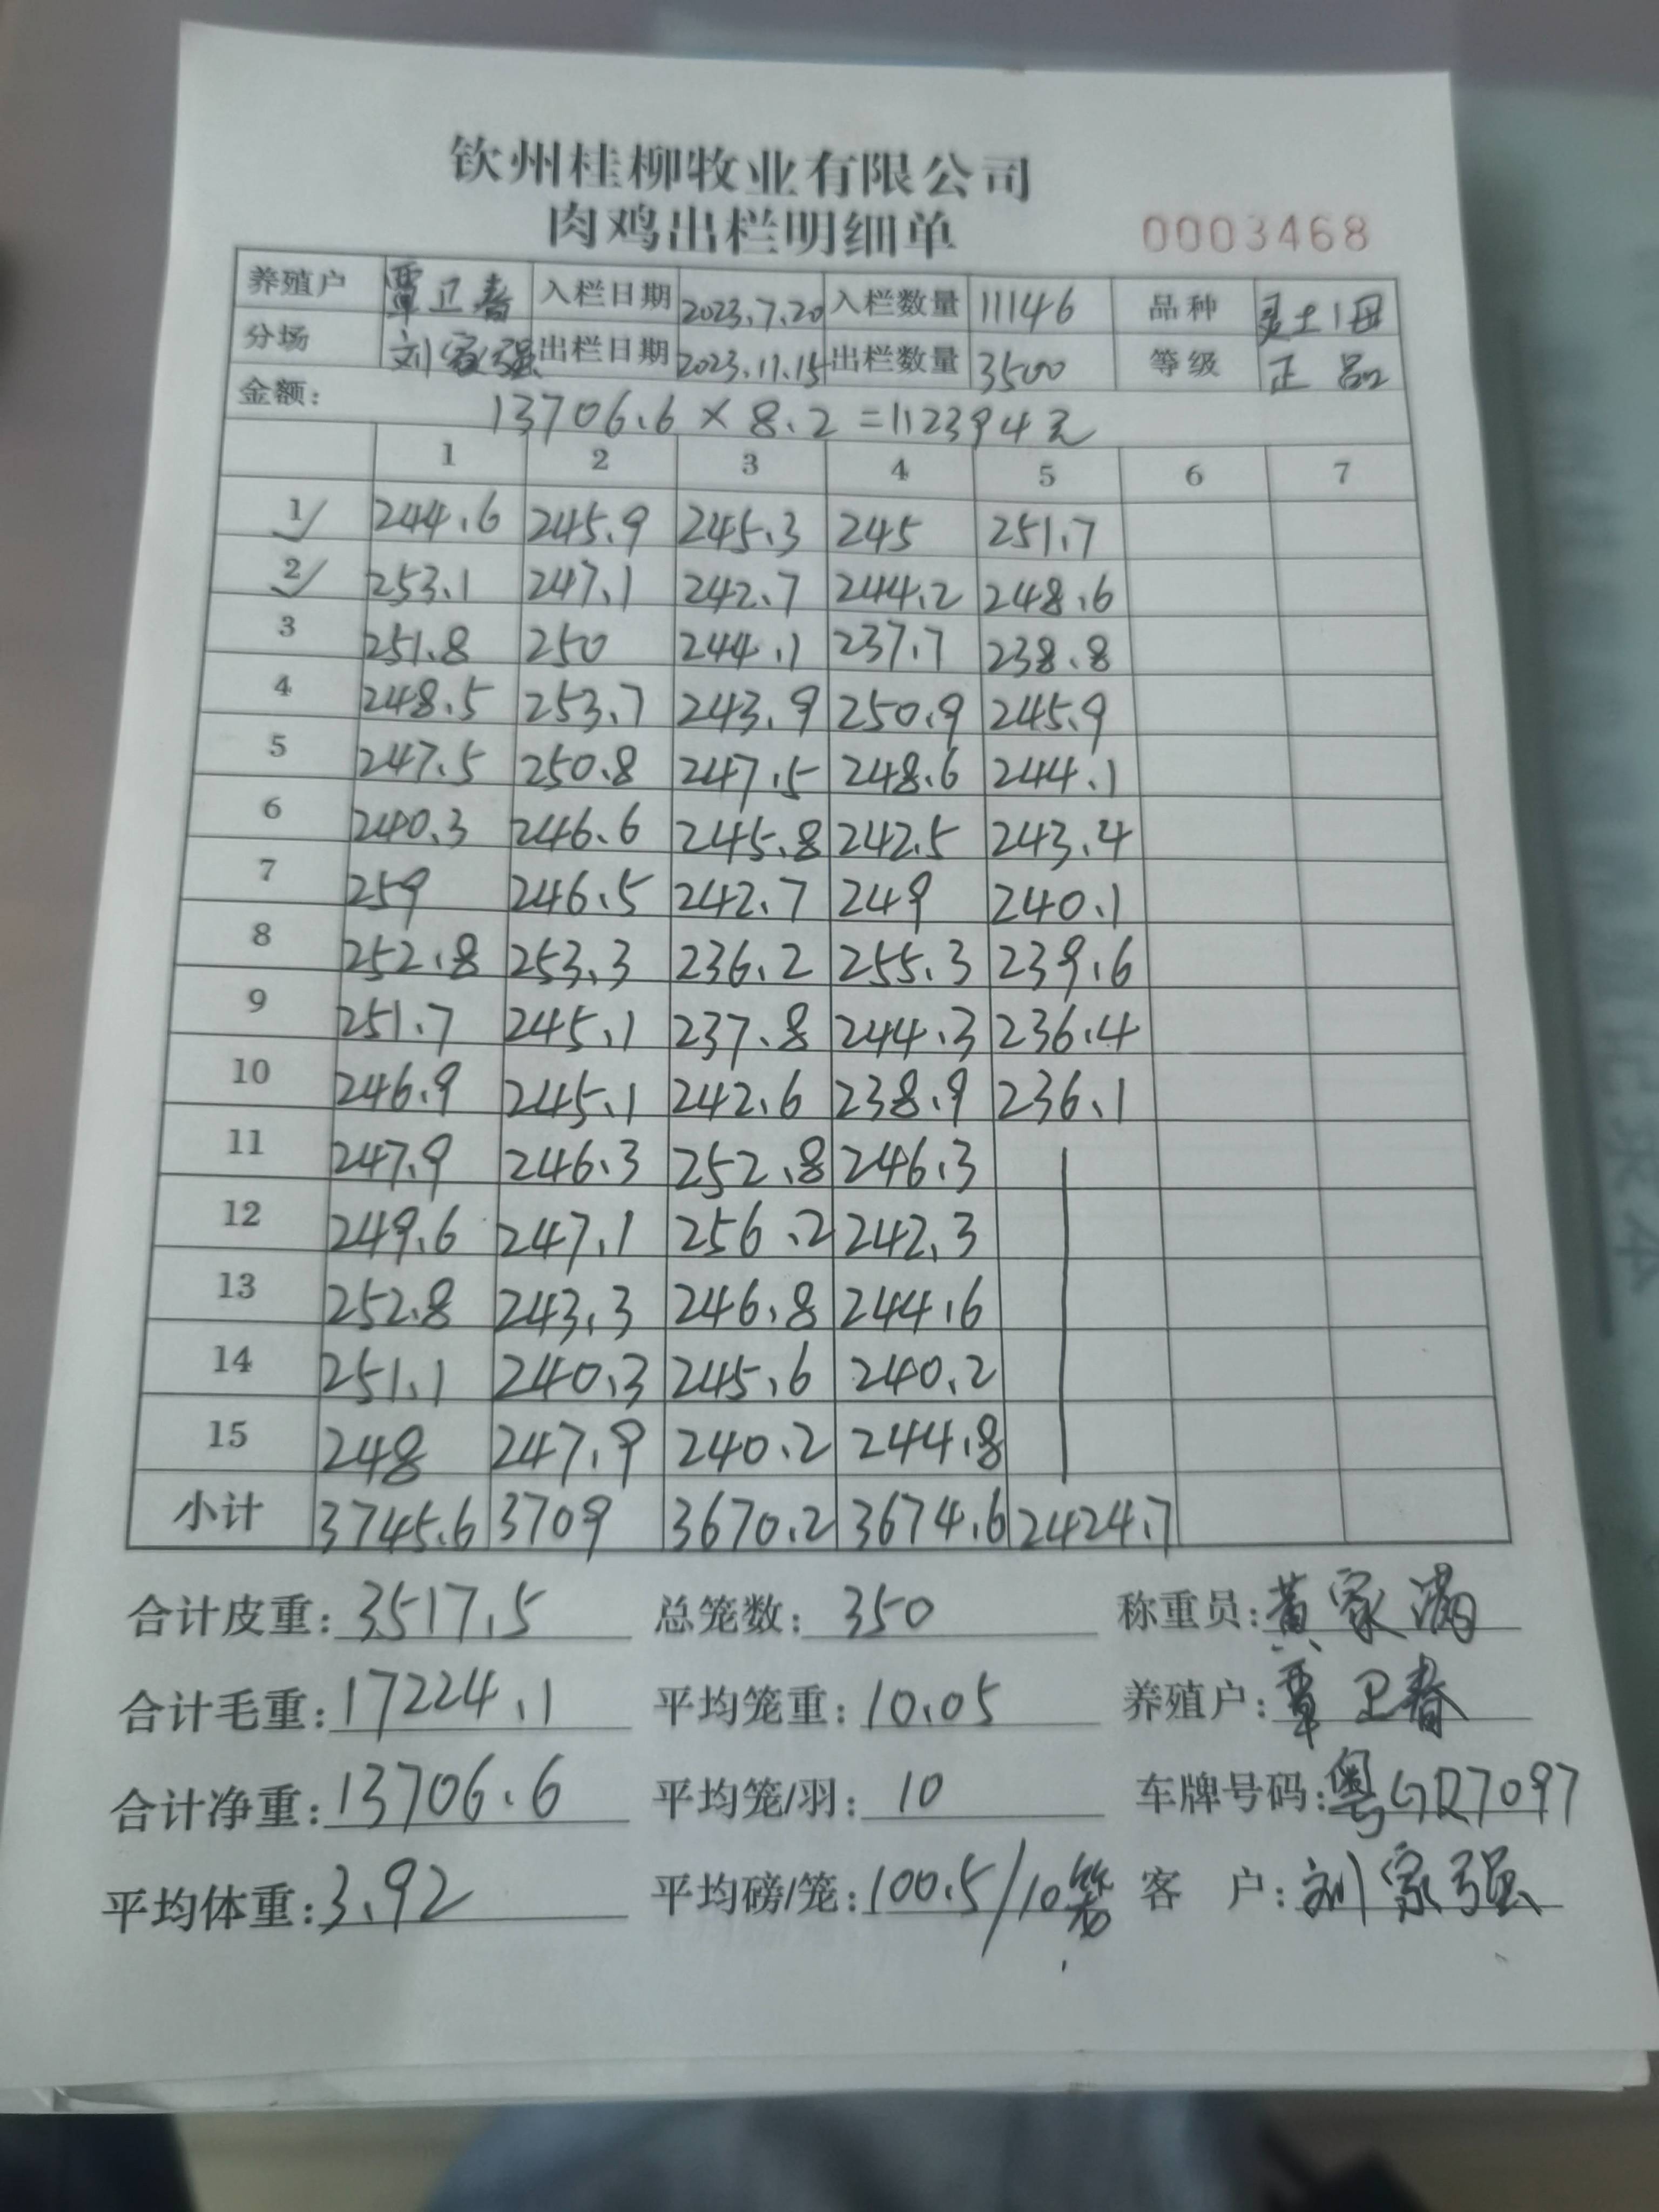 钦州桂柳牧业有限公司
肉鸡出栏明细单 0003468
养殖户 覃卫春 入栏日期 2023.7.20 入栏数量 11146 品种 灵土1母
分场 刘家强 出栏日期 2023.11.15 出栏数量 3500 等级 正品
金额: 13706.6 × 8.2 = 112394元
1 2 3 4 5 6 7
1 244.6 245.9 245.3 245 251.7
2 253.1 247.1 242.7 244.2 248.6
3 251.8 250 244.1 237.7 238.8
4 248.5 253.7 243.9 250.9 245.9
5 247.5 250.8 247.5 248.6 244.1
6 240.3 246.6 245.8 242.5 243.4
7 259 246.5 242.7 249 240.1
8 252.8 253.3 236.2 255.3 239.6
9 251.7 245.1 237.8 244.3 236.4
10 246.9 245.1 242.6 238.9 236.1
11 247.9 246.3 252.8 246.3
12 249.6 247.1 256.2 242.3
13 252.8 243.3 246.8 244.6
14 251.1 240.3 245.6 240.2
15 248 247.9 240.2 244.8
小计 3745.6 3709 3670.2 3674.6 2424.7
合计皮重: 3517.5 总笼数: 350 称重员: 黄家满
合计毛重: 17224.1 平均笼重: 10.05 养殖户: 覃卫春
合计净重: 13706.6 平均笼/羽: 10 车牌号码: 粤GR7097
平均体重: 3.92 平均磅/笼: 100.5/10笼 客 户: 刘家强